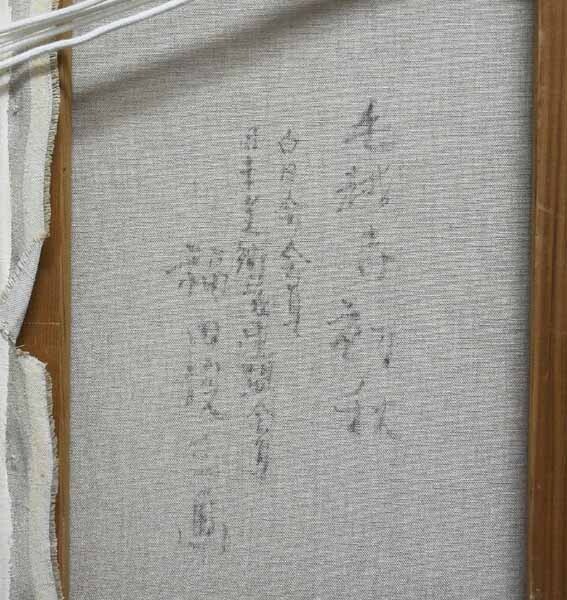 毛越寺初秋
白日会会員
日本美術家連盟会員
福田